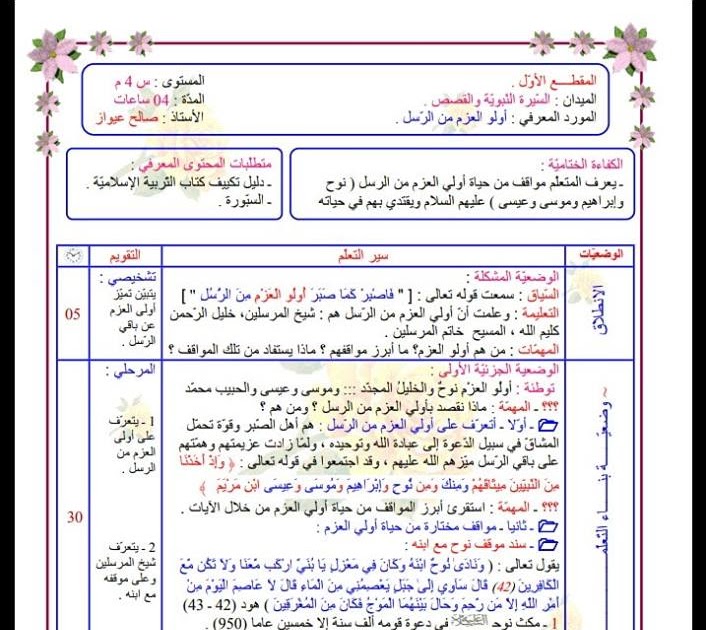 المقطــع الأوّل .
الميدان : السّيرة النّبويّة والقصص .
المورد المعرفي : أولو العزم من الرّسل .
المستوى : س 4 م
المدّة : 04 ساعات
الأستاذ : صالح عيواز
الكفاءة الختاميّة :
ـ يعرف المتعلّم مواقف من حياة أولي العزم من الرسل ( نوح
وإبراهيم وموسى وعيسى ) عليهم السلام ويقتدي بهم في حياته
متطلّبات المحتوى المعرفي :
ـ دليل تكييف كتاب التّربية الإسلاميّة .
ـ السّبّورة .
الوضعيّات
سير التعلّم
التقويم
الانطلاق
الوضعيّة المشكلة :
السّياق : سمعت قوله تعالى : [ " فَاصْبِرْ كَمَا صَبَرَ أُولُو الْعَزْمِ مِنَ الرُّسُلِ " ]
التعليمة : وعلمت أنّ أولي العزم من الرّسل هم : شيخ المرسلين، خليل الرّحمن
كليم الله ، المسيح خاتم المرسلين .
المهمّات : من هم أولو العزم؟ ما أبرز مواقفهم ؟ ماذا يستفاد من تلك المواقف ؟
تشخيصي :
يتبيّن تميّز
أولى العزم
عن باقي
الرّسل .
05
~ وضعيّـــة بنـــاء التّعلّمـ
الوضعية الجزئيّة الأولى :
توطئة : أولُو العزْم نوحٌ والخليلُ المجدّد ::: وموسى وعيسى والحبيب محمّد
؟؟؟ ـ المهمّة : ماذا نقصد بأولي العزم من الرسل ؟ ومن هم ؟
ـ أوّلا ـ أتعرّف على أولي العزم من الرّسل : هم أهل الصّبر وقوّة تحمّل
المشاقّ في سبيل الدّعوة إلى عبادة الله وتوحيده ، ولمّا زادت عزيمتهم وهمّتهم
على باقي الرّسل ميّزهم الله عليهم ، وقد اجتمعوا في قوله تعالى : ﴿ وَإِذْ أَخَذْنَا
مِنَ النَّبِيِّينَ مِيثَاقَهُمْ وَمِنْكَ وَمِن نُوحٍ وَإِبْرَاهِيمَ وَمُوسَى وَعِيسَى ابْنِ مَرْيَمَ ﴾
؟؟؟ ـ المهمّة : استقرئ أبرز المواقف من حياة أولي العزم من خلال الآيات .
ـ ثانيا ـ مواقف مختارة من حياة أولي العزم :
ـ سند موقف نوح مع ابنه :
يقول تعالى : ( وَنَادَى نُوحٌ ابْنَهُ وَكَانَ فِي مَعْزِلٍ يَا بُنَيَّ ارْكَب مَّعَنَا وَلَا تَكُن مَّعَ
الْكَافِرِينَ (42) قَالَ سَآوِي إِلَى جَبَلٍ يَعْصِمُنِي مِنَ الْمَاءِ قَالَ لَا عَاصِمَ الْيَوْمَ مِنْ
أَمْرِ اللَّهِ إِلَّا مَن رَّحِمَ وَحَالَ بَيْنَهُمَا الْمَوْجُ فَكَانَ مِنَ الْمُغْرَقِينَ ) هود (42 - 43)
1 ـ مكث نوح في دعوة قومه ألف سنة إلا خمسين عاما (950) .
المرحلي :
1 ـ يتعرّف
على أولى
العزم من
الرسل .
2 ـ يتعرّف
شيخ المرسلين
وعلى موقفه
مع ابنه .
30